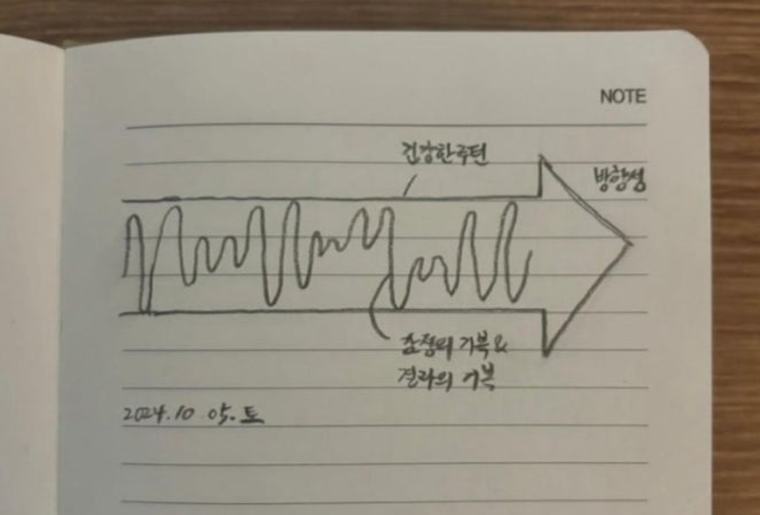 NOTE
건강한루틴
방향성
감정의 기복 &
결과의 기복
2024.10.05.토